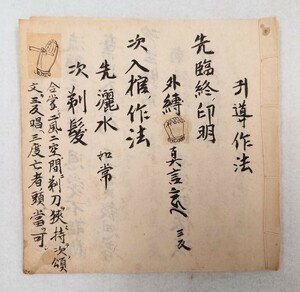 引導作法
先臨終印明
外縛 真言 三反
次入棺作法
先灑水 如常
次剃髮
合掌二風二空間剃刀狹持次頌
文三反唱三度亡者頭當可